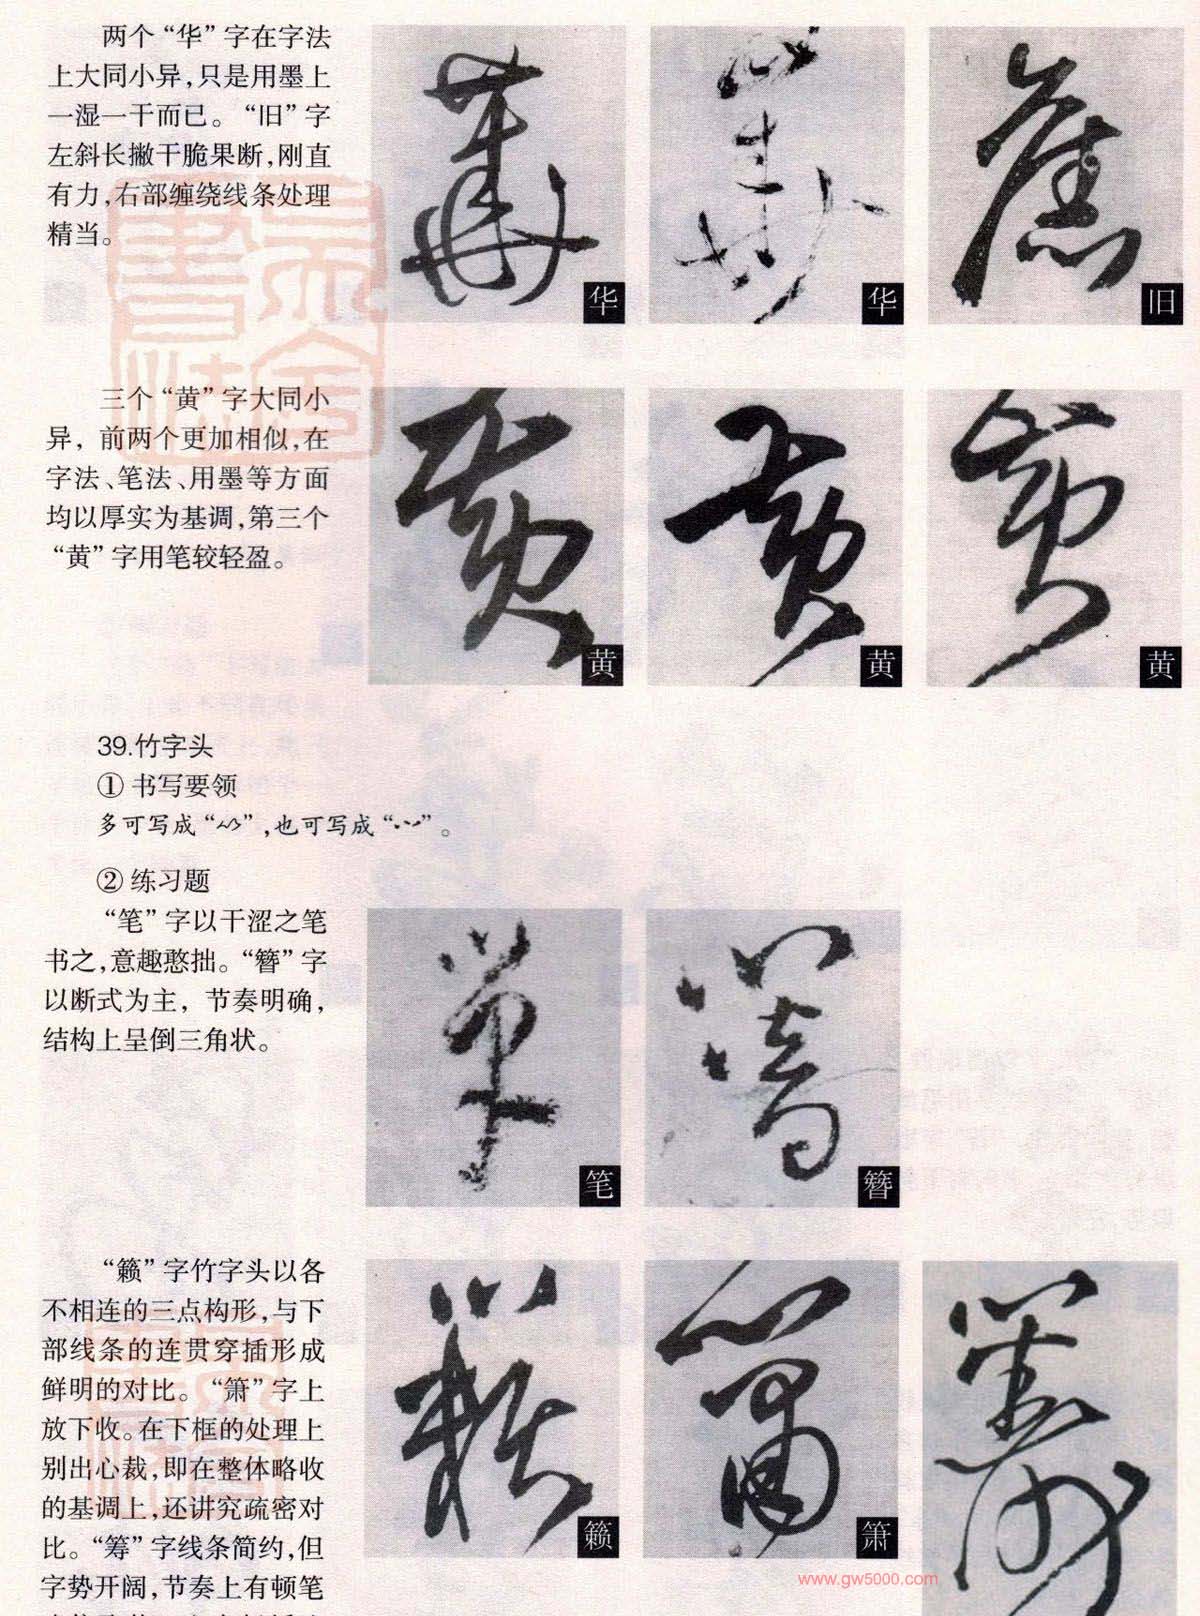 两个“华”字在字法
上大同小异,只是用墨上
一湿一干而已。“旧”字
左斜长撇干脆果断,刚直
有力,右部缠绕线条处理
精当。
华
华
旧
三个“黄”字大同小
异，前两个更加相似,在
字法、笔法、用墨等方面
均以厚实为基调,第三个
“黄”字用笔较轻盈。
黄
黄
黄
39.竹字头
① 书写要领
多可写成“”,也可写成“”。
② 练习题
“笔”字以干涩之笔
书之,意趣憨拙。“簪”字
以断式为主，节奏明确，
结构上呈倒三角状。
笔
簪
“籁”字竹字头以各
不相连的三点构形,与下
部线条的连贯穿插形成
鲜明的对比。“箫”字上
放下收。在下框的处理上
别出心裁,即在整体略收
的基调上,还讲究疏密对
比。“筹”字线条简约,但
字势开阔,节奏上有顿笔
籁
箫
www.gw5000.com